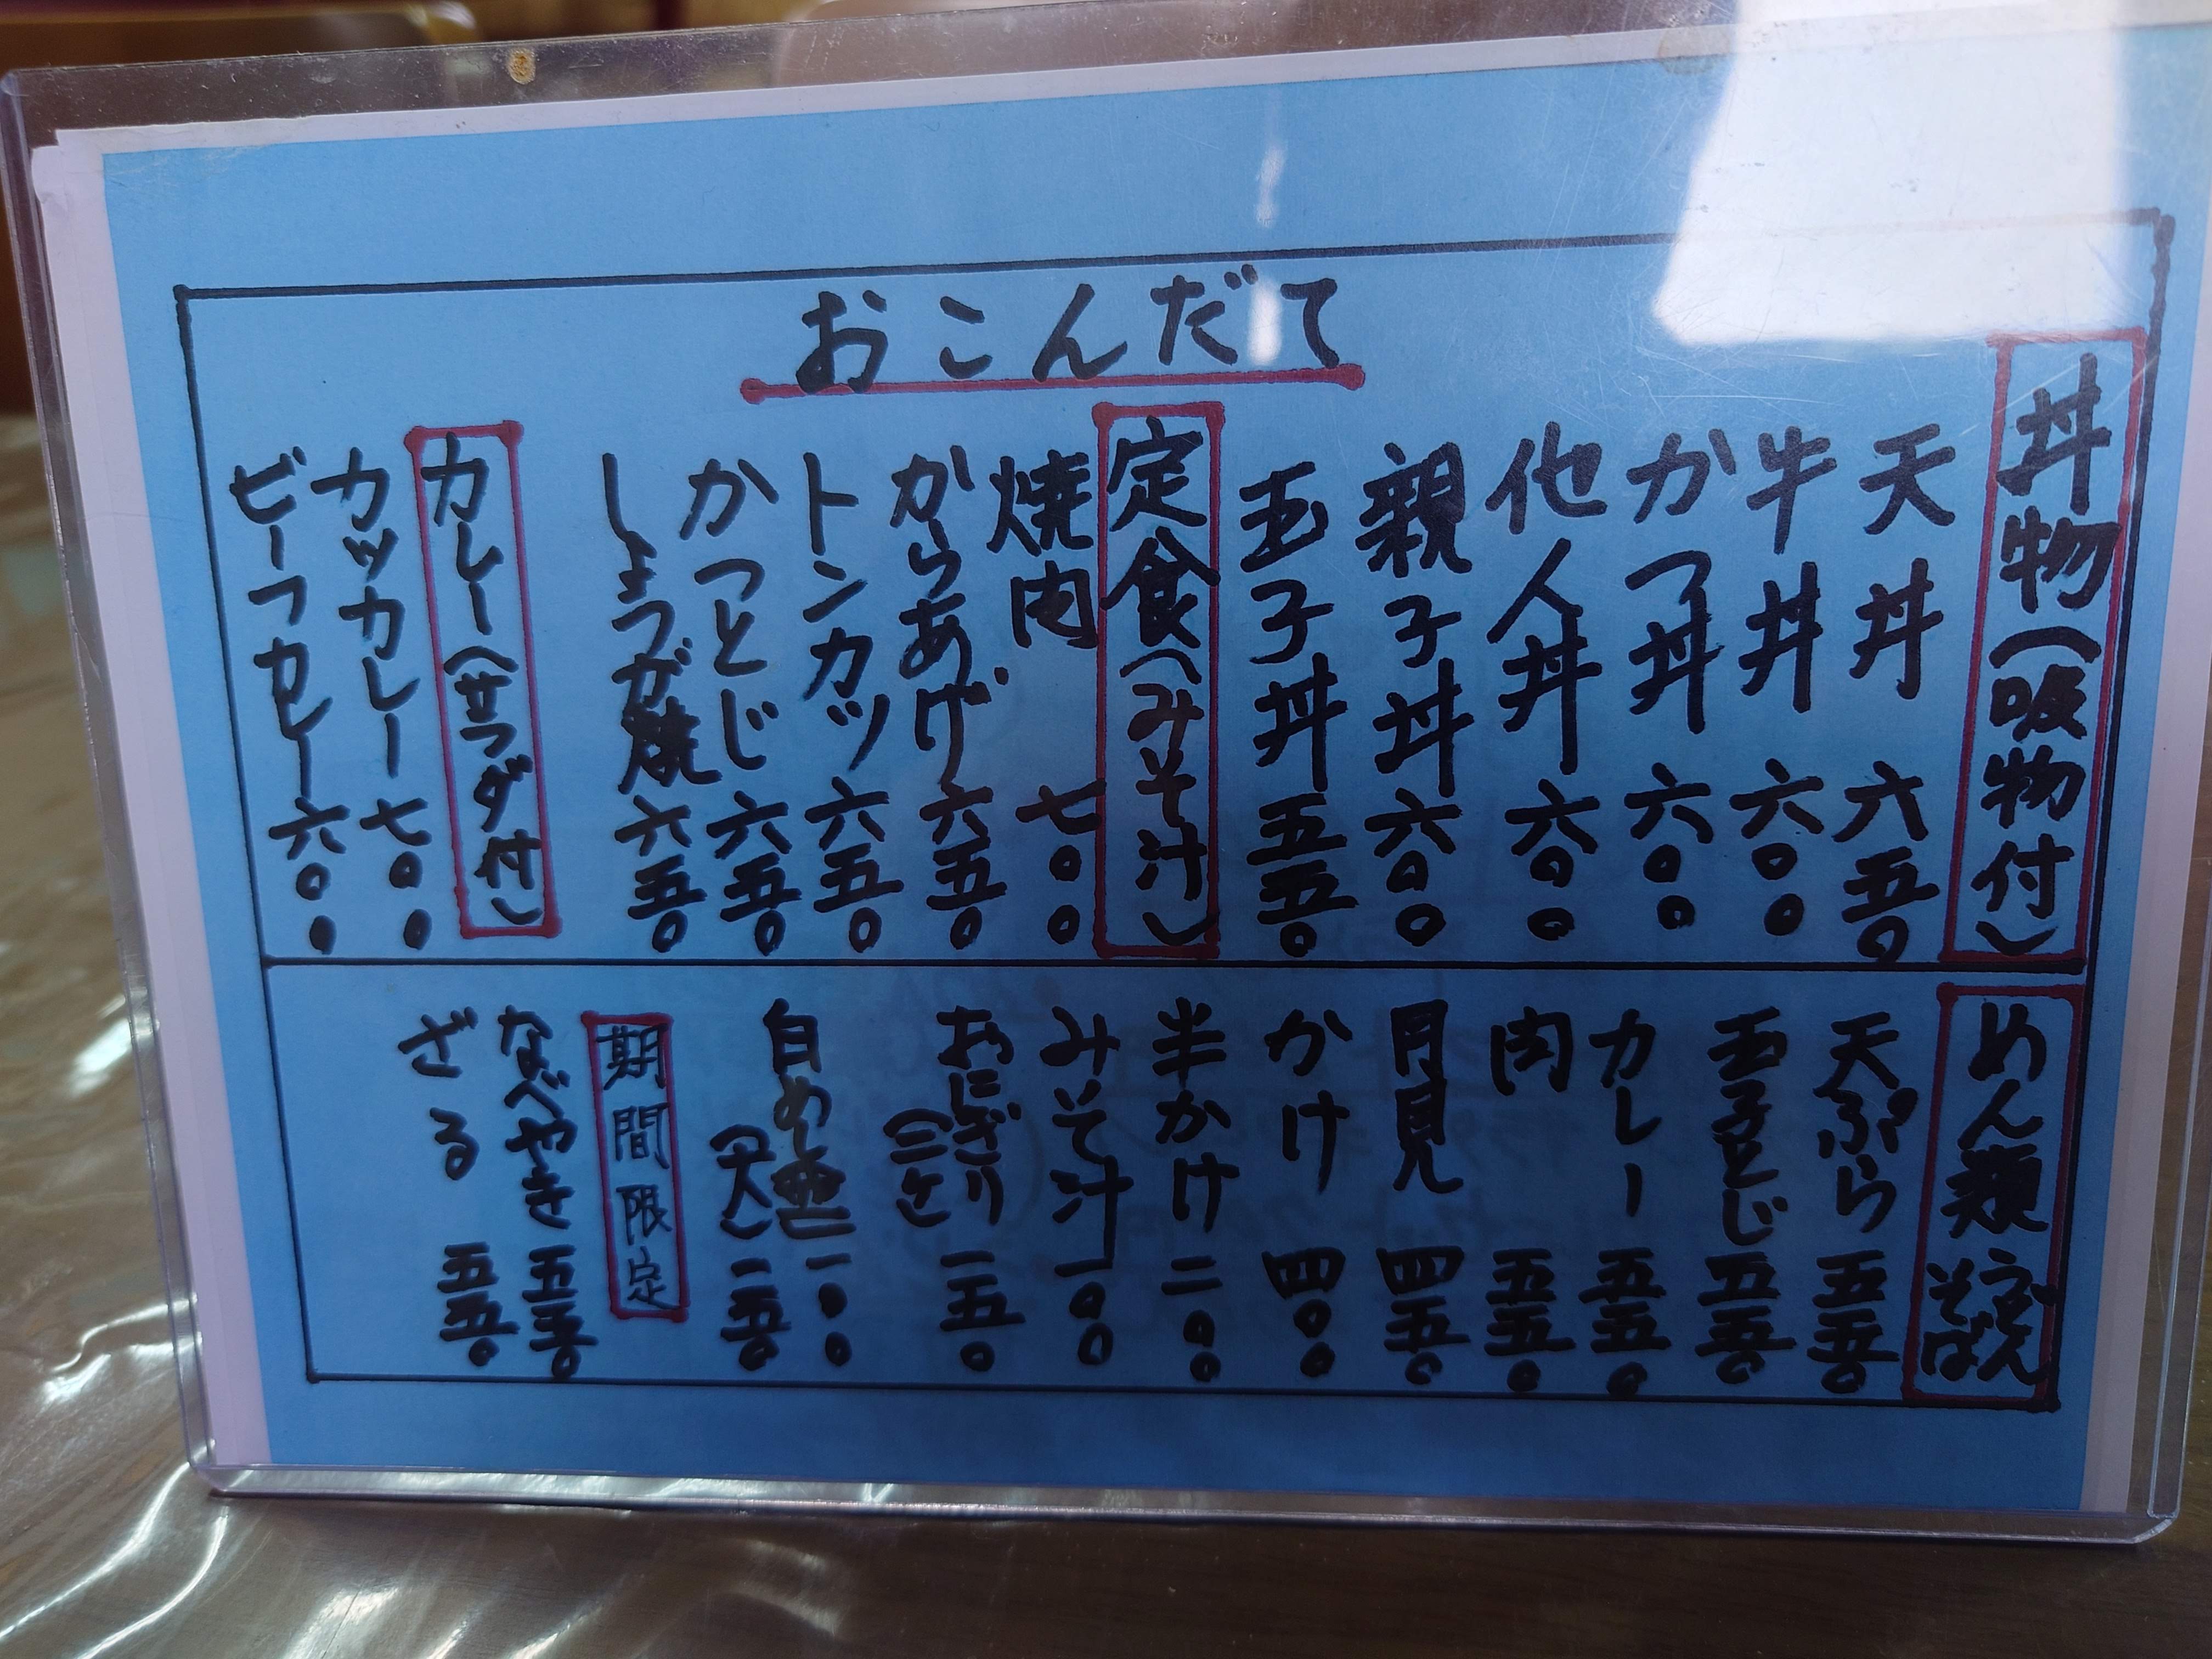 おこんだて
丼物（吸物付）
天丼 六五〇
牛丼 六〇〇
かつ丼 六〇〇
他人丼 六〇〇
親子丼 六〇〇
玉子丼 五五〇
定食（みそ汁）
焼肉 七〇〇
からあげ 六五〇
トンカツ 六五〇
かつとじ 六五〇
しょうが焼 六五〇
カレー（サラダ付）
カツカレー 七〇〇
ビーフカレー 六〇〇
めん類 うどん そば
天ぷら 五五〇
玉子とじ 五五〇
カレー 五五〇
肉 五五〇
月見 四五〇
かけ 四〇〇
半かけ 二〇〇
みそ汁 一〇〇
おにぎり（二ケ） 一五〇
白めし 一〇〇
（大） 一五〇
期間限定
なべやき 五五〇
ざる 五五〇